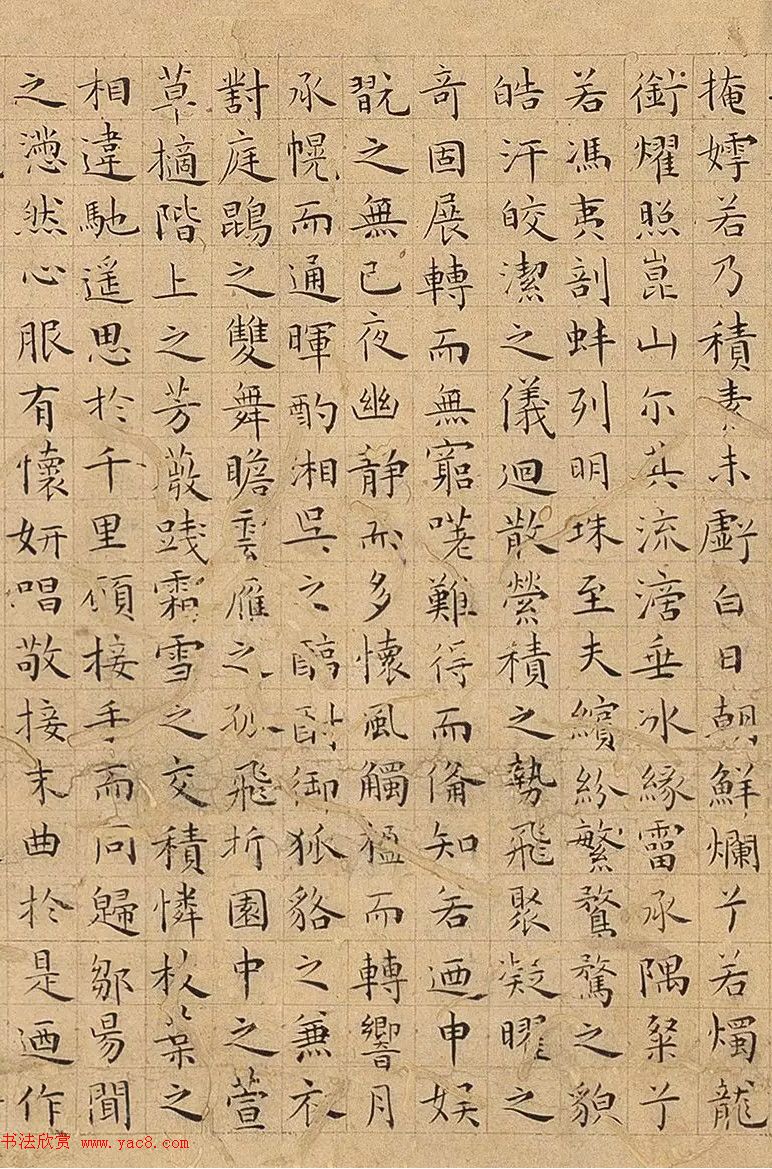 掩嫮若乃積素未虧白日朝鮮爛兮若燭龍
銜燿照崑山尔其流滴垂冰緣霤承隅粲兮
若馮夷剖蚌列明珠至夫繽紛繁騖驚之貌
皓汗皎潔之儀迴散縈積之勢飛聚凝曜之
奇固展轉而無窮嗟難得而俻知若迺申娛
翫之無已夜幽靜而多懷風觸楹而轉響月
承幌而通暉酌湘吳之醇酎御狐貉之兼衣
對庭鵾之雙舞瞻雲雁之孤飛折園中之萱
草摘階上之芳薇踐霜雪之交積憐枝葉之
相違馳遥思於千里願接手而同歸鄒陽聞
之懣然心服有懷妍唱敬接末曲於是迺作
书法欣赏 www.yac8.com